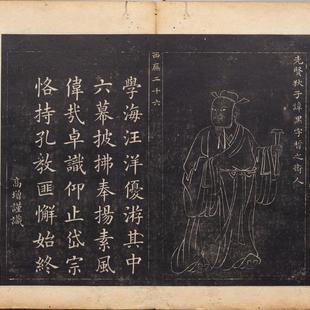 先賢狄子諱黑字晢之衛人
西廡二十六
學海汪洋優游其中
六幕披拂奉揚素風
偉哉卓識仰止岱宗
恪持孔教匪懈始終
高增謹識